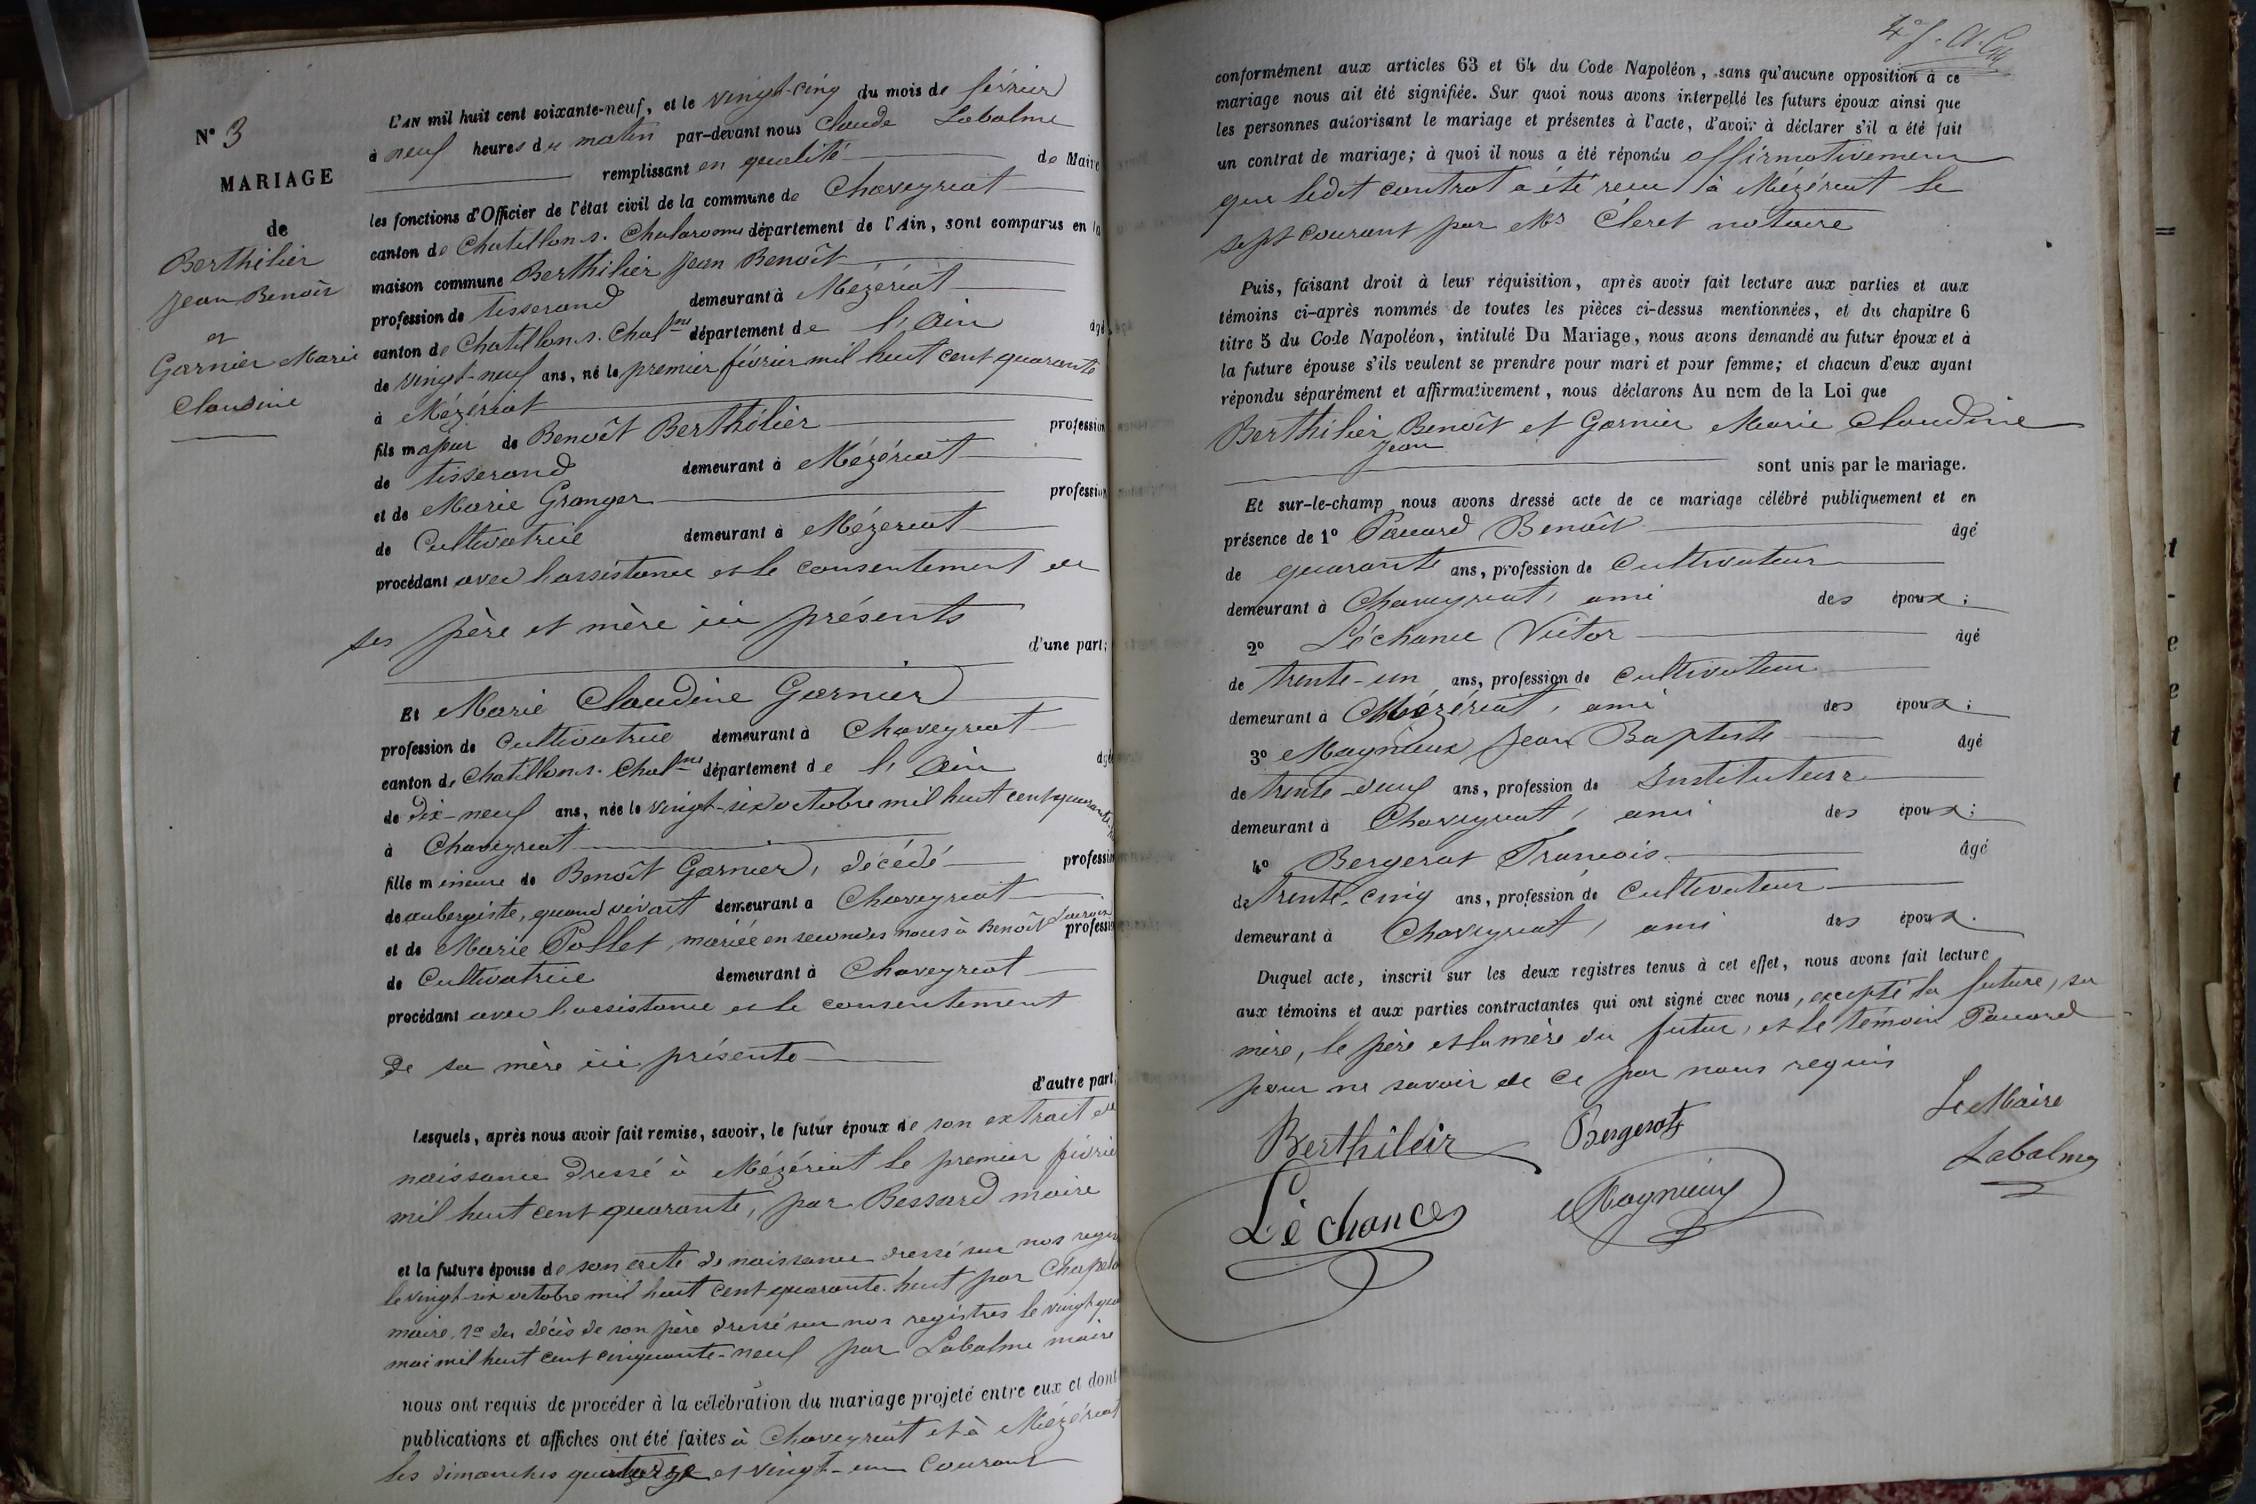 N° 3
MARIAGE
de
Berthilier
Jean Benoît
et
Garnier Marie
Claudine
L'AN mil huit cent soixante-neuf, et le vingt-cinq du mois de février
à neuf heures du matin par-devant nous Claude Labalme
remplissant en qualité de Maire
les fonctions d'Officier de l'état civil de la commune de Chaveyriat
canton de Chatillon s. Chalaronne département de l'Ain, sont comparus en la
maison commune Berthilier Jean Benoît
profession de tisserand demeurant à Mézériat
canton de Chatillon s. Chal.ne département de l'Ain âgé
de vingt-neuf ans, né le premier février mil huit cent quarante
à Mézériat
fils majeur de Benoît Berthilier profession
de tisserand demeurant à Mézériat
et de Marie Granger profession
de Cultivatrice demeurant à Mézeriat
procédant avec l'assistance et le consentement de
ses père et mère ici présents
d'une part;
Et Marie Claudine Garnier
profession de Cultivatrice demeurant à Chaveyriat
canton de Chatillon s. Chal.ne département de l'Ain âgé
de dix-neuf ans, née le vingt-six octobre mil huit cent quarante-
à Chaveyriat
fille mineure de Benoît Garnier, décédé profession
de aubergiste, quand vivait demeurant à Chaveyriat
et de Marie Pollet, mariée en secondes noces à Benoît profession
de Cultivatrice demeurant à Chaveyriat
procédant avec l'assistance et le consentement
de sa mère ici présente
d'autre part;
Lesquels, après nous avoir fait remise, savoir, le futur époux de son extrait de
naissance dressé à Mézériat le premier février
mil huit cent quarante, par Bessard maire
et la future épouse de son acte de naissance dressé sur nos regis
le vingt-six octobre mil huit cent quarante-huit par
maire, 2° du décès de son père dressé sur nos registres le vingt-qua
mai mil huit cent cinquante-neuf par Labalme maire
nous ont requis de procéder à la célébration du mariage projeté entre eux et dont
publications et affiches ont été faites à Chaveyriat et à Mézériat
les dimanches quatorze et vingt-un courant
conformément aux articles 63 et 64 du Code Napoléon, sans qu'aucune opposition à ce
mariage nous ait été signifiée. Sur quoi nous avons interpellé les futurs époux ainsi que
les personnes autorisant le mariage et présentes à l'acte, d'avoir à déclarer s'il a été fait
un contrat de mariage; à quoi il nous a été répondu affirmativement
que ledit contrat a été recu à Mézériat le
sept courant par Me Cleret notaire
Puis, faisant droit à leur réquisition, après avoir fait lecture aux parties et aux
témoins ci-après nommés de toutes les pièces ci-dessus mentionnées, et du chapitre 6
titre 5 du Code Napoléon, intitulé Du Mariage, nous avons demandé au futur époux et à
la future épouse s'ils veulent se prendre pour mari et pour femme; et chacun d'eux ayant
répondu séparément et affirmativement, nous déclarons Au nom de la Loi que
Berthilier Benoît et Garnier Marie Claudine
Jean
sont unis par le mariage.
Et sur-le-champ nous avons dressé acte de ce mariage célébré publiquement et en
présence de 1° Pauard Benoît âgé
de quarante ans, profession de Cultivateur
demeurant à Chaveyriat, ami des époux;
2° Léchance Victor âgé
de trente-un ans, profession de Cultivateur
demeurant à Mézériat, ami des époux;
3° Magnieux Jean Baptiste âgé
de trente-deux ans, profession de Instituteur
demeurant à Chaveyriat, ami des époux;
4° Bergerat Francois âgé
de trente-cinq ans, profession de Cultivateur
demeurant à Chaveyriat, ami des époux.
Duquel acte, inscrit sur les deux registres tenus à cet effet, nous avons fait lecture
aux témoins et aux parties contractantes qui ont signé avec nous, excepté la future, sa
mère, le père et la mère du futur, et le témoin Pauard
pour ne savoir de ce par nous requis
Le Maire
Berthilier Bergerat
Labalme
Léchance Magnieux